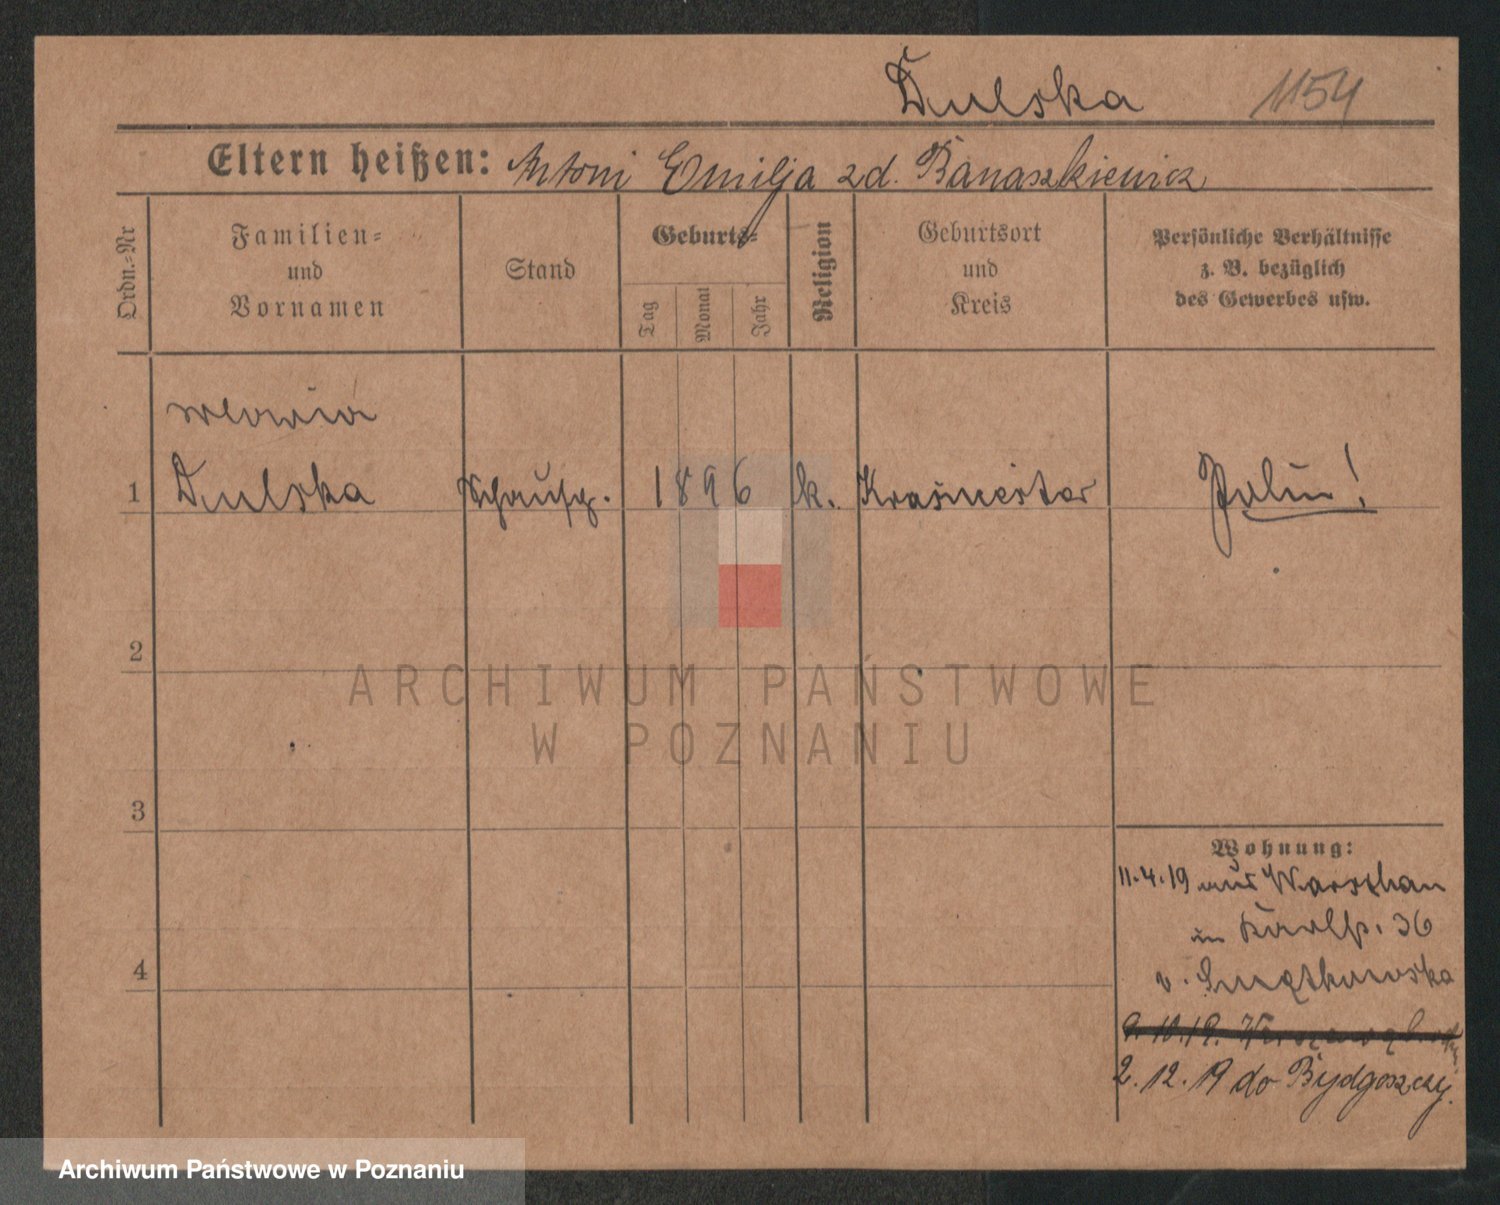 Dulska 1154
Eltern heißen: Antoni Emilja zd. Banaszkiewicz
Ordn.-Nr
Familien-
und
Vornamen
Stand
Geburts-
Tag
Monat
Jahr
Religion
Geburtsort
und
Kreis
Persönliche Verhältnisse
z. B. bezüglich
des Gewerbes usw.
1 Dulska Schausp. 1896 k. Polin!
2
3
4
Wohnung:
11.4.19 aus Warschau
in 36
v.
2.12.19 do Bydgoszczy.
ARCHIWUM PAŃSTWOWE
W POZNANIU
Archiwum Państwowe w Poznaniu